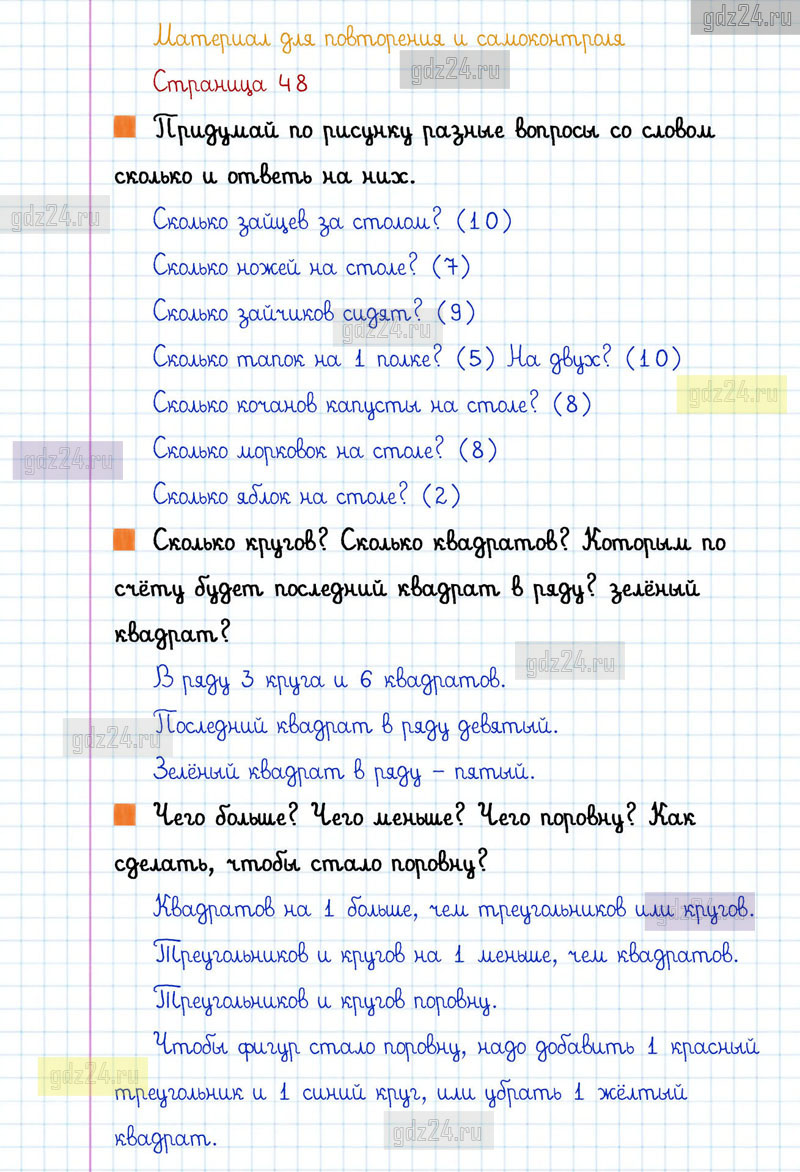 gdz24.ru
Материал для повторения и самоконтроля
gdz24.ru
Страница 48
Придумай по рисунку разные вопросы со словом
сколько и ответь на них.
gdz24.ru
Сколько зайцев за столом? (10)
Сколько ножей на столе? (7)
Сколько зайчиков сидят? (9)
gdz24.ru
Сколько тапок на 1 полке? (5) На двух? (10)
gdz24.ru
Сколько кочанов капусты на столе? (8)
Сколько морковок на столе? (8)
gdz24.ru
Сколько яблок на столе? (2)
Сколько кругов? Сколько квадратов? Которым по
счёту будет последний квадрат в ряду? зелёный
квадрат?
gdz24.ru
В ряду 3 круга и 6 квадратов.
Последний квадрат в ряду девятый.
gdz24.ru
Зелёный квадрат в ряду – пятый.
Чего больше? Чего меньше? Чего поровну? Как
сделать, чтобы стало поровну?
Квадратов на 1 больше, чем треугольников или кругов.
gdz24.ru
Треугольников и кругов на 1 меньше, чем квадратов.
Треугольников и кругов поровну.
Чтобы фигур стало поровну, надо добавить 1 красный
gdz24.ru
треугольник и 1 синий круг, или убрать 1 жёлтый
квадрат.
gdz24.ru